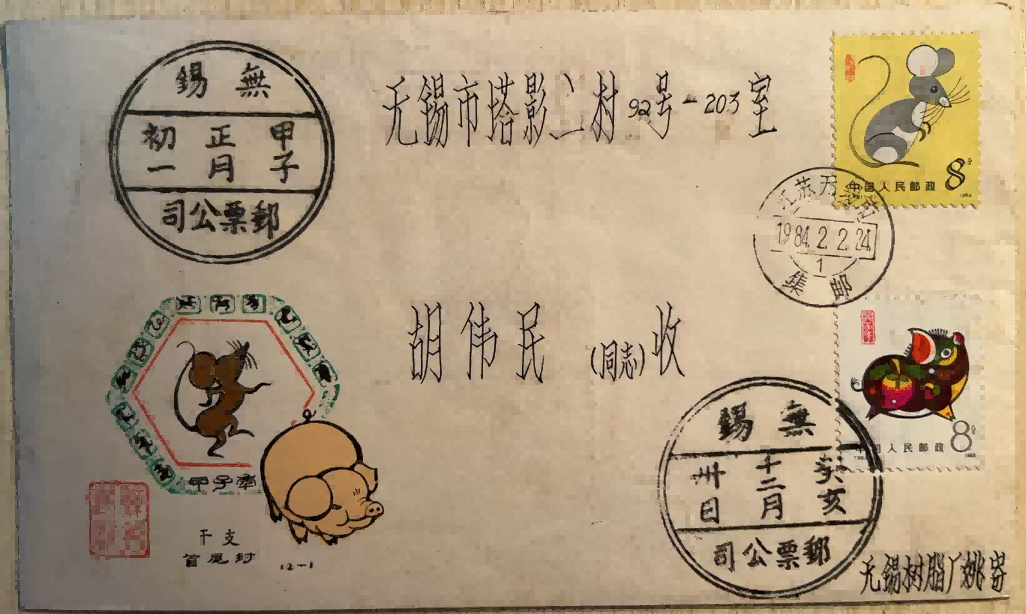 無錫
甲子
正月
初一
郵票公司
无锡市塔影二村92号-203室
中国人民邮政
8分
1984.2.2.24
1
集邮
胡伟民(同志)收
甲子季
干支
首尾封
12-1
中国人民邮政
8分
無錫
癸亥
十二月
卅日
郵票公司
无锡树脂厂姚寄